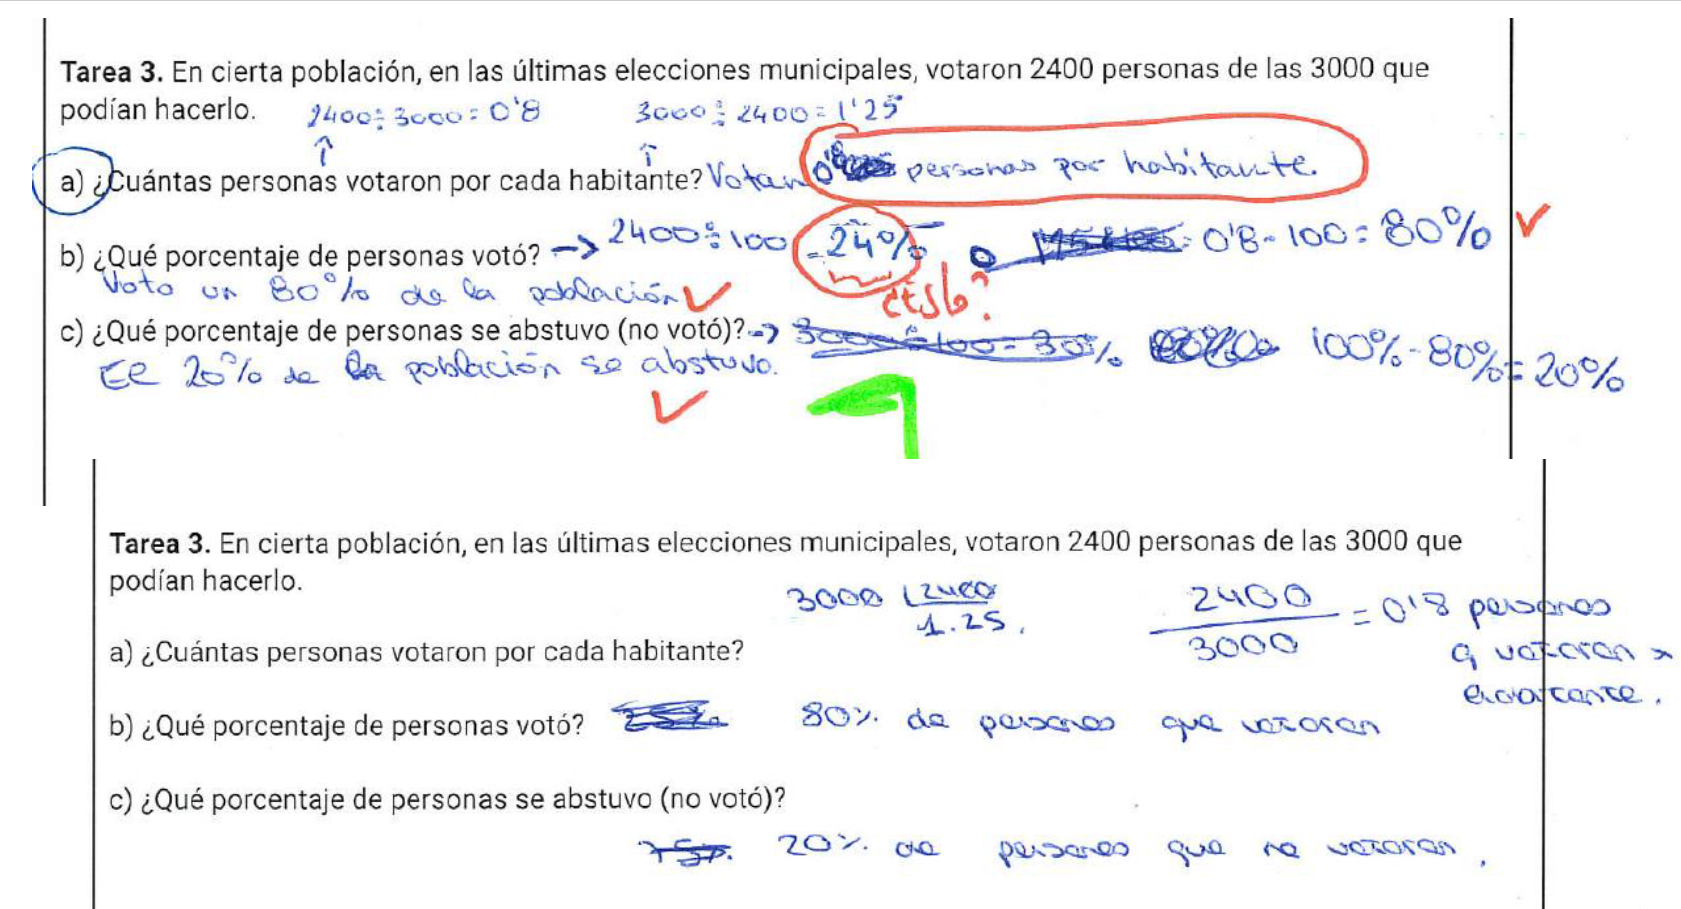 Tarea 3. En cierta población, en las últimas elecciones municipales, votaron 2400 personas de las 3000 que
podían hacerlo. 2400÷3000=0'8 3000÷2400=1'25
a) ¿Cuántas personas votaron por cada habitante? Votan 0'8 personas por habitante.
b) ¿Qué porcentaje de personas votó? → 2400÷100 =24% 0'8·100=80%
Voto un 80% de la población
¿Esto?
c) ¿Qué porcentaje de personas se abstuvo (no votó)? → 3000÷100=30% 100%-80%=20%
El 20% de la población se abstuvo.
Tarea 3. En cierta población, en las últimas elecciones municipales, votaron 2400 personas de las 3000 que
podían hacerlo.
3000 2400
1.25.
2400
3000
=0'8 personas
q votaron x
a) ¿Cuántas personas votaron por cada habitante?
b) ¿Qué porcentaje de personas votó? 80% de personas que votaron
c) ¿Qué porcentaje de personas se abstuvo (no votó)?
20% de personas que no votaron.